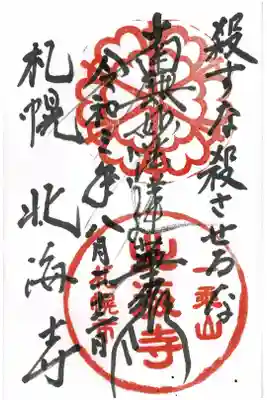 殺すな殺させるな
南無妙法蓮華経
令和三年八月一日
札幌 北海寺
一乗山
北海寺
札幌市